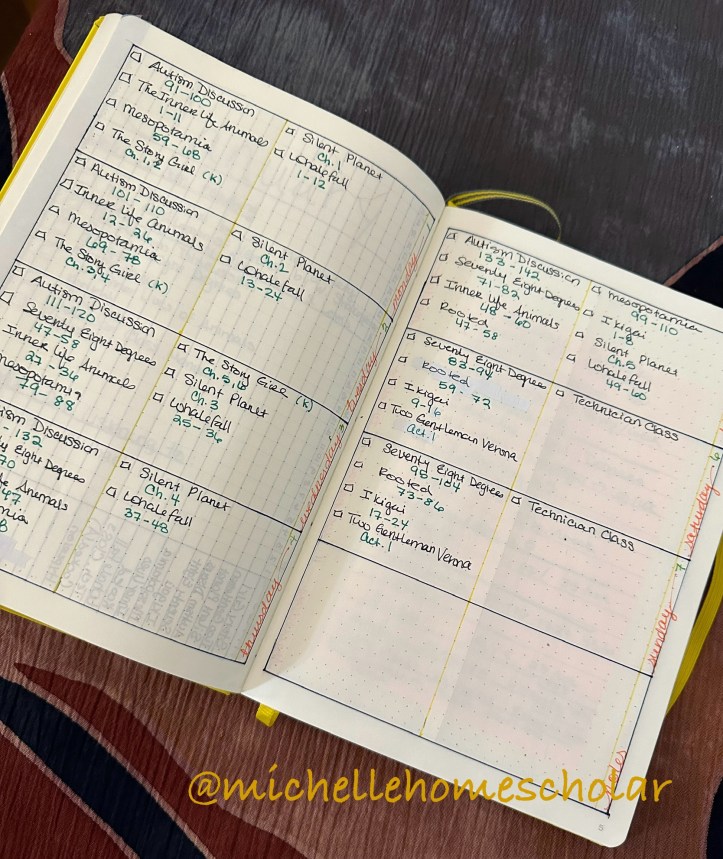 Autism Discussion
91-100
The Inner Life Animals
1-11
Mesopotamia
59-68
The Story Girl (K)
Ch. 1,2
Silent Planet
Ch. 1
Whalefall
1-12
monday
Autism Discussion
101-110
Inner Life Animals
12-26
Mesopotamia
69-78
The Story Girl (K)
Ch. 3,4
Silent Planet
Ch. 2
Whalefall
13-24
2
tuesday
Autism Discussion
111-120
Seventy Eight Degrees
47-58
Inner Life Animals
27-36
Mesopotamia
79-88
The Story Girl (K)
Ch. 5,6
Silent Planet
Ch. 3
Whalefall
25-36
wednesday
ism Discussion
-132
y Eight Degrees
70
fe Animals
47
mia
8
Silent Planet
Ch. 4
Whalefall
37-48
thursday
Autism Discussion
133-142
Seventy Eight Degrees
71-82
Inner Life Animals
48-60
Rooted
47-58
Mesopotamia
99-110
Ikigai
1-8
Silent Planet
Ch. 5
Whalefall
49-60
Seventy Eight Degree
83-94
Rooted
59-72
Ikigai
9-16
Two Gentleman Verona
act. 1
Technician Class
saturday
Seventy Eight Degrees
95-104
Rooted
73-86
Ikigai
17-24
Two Gentleman Verona
act. 1
Technician Class
7
sunday
notes
5
@michellehomescholar